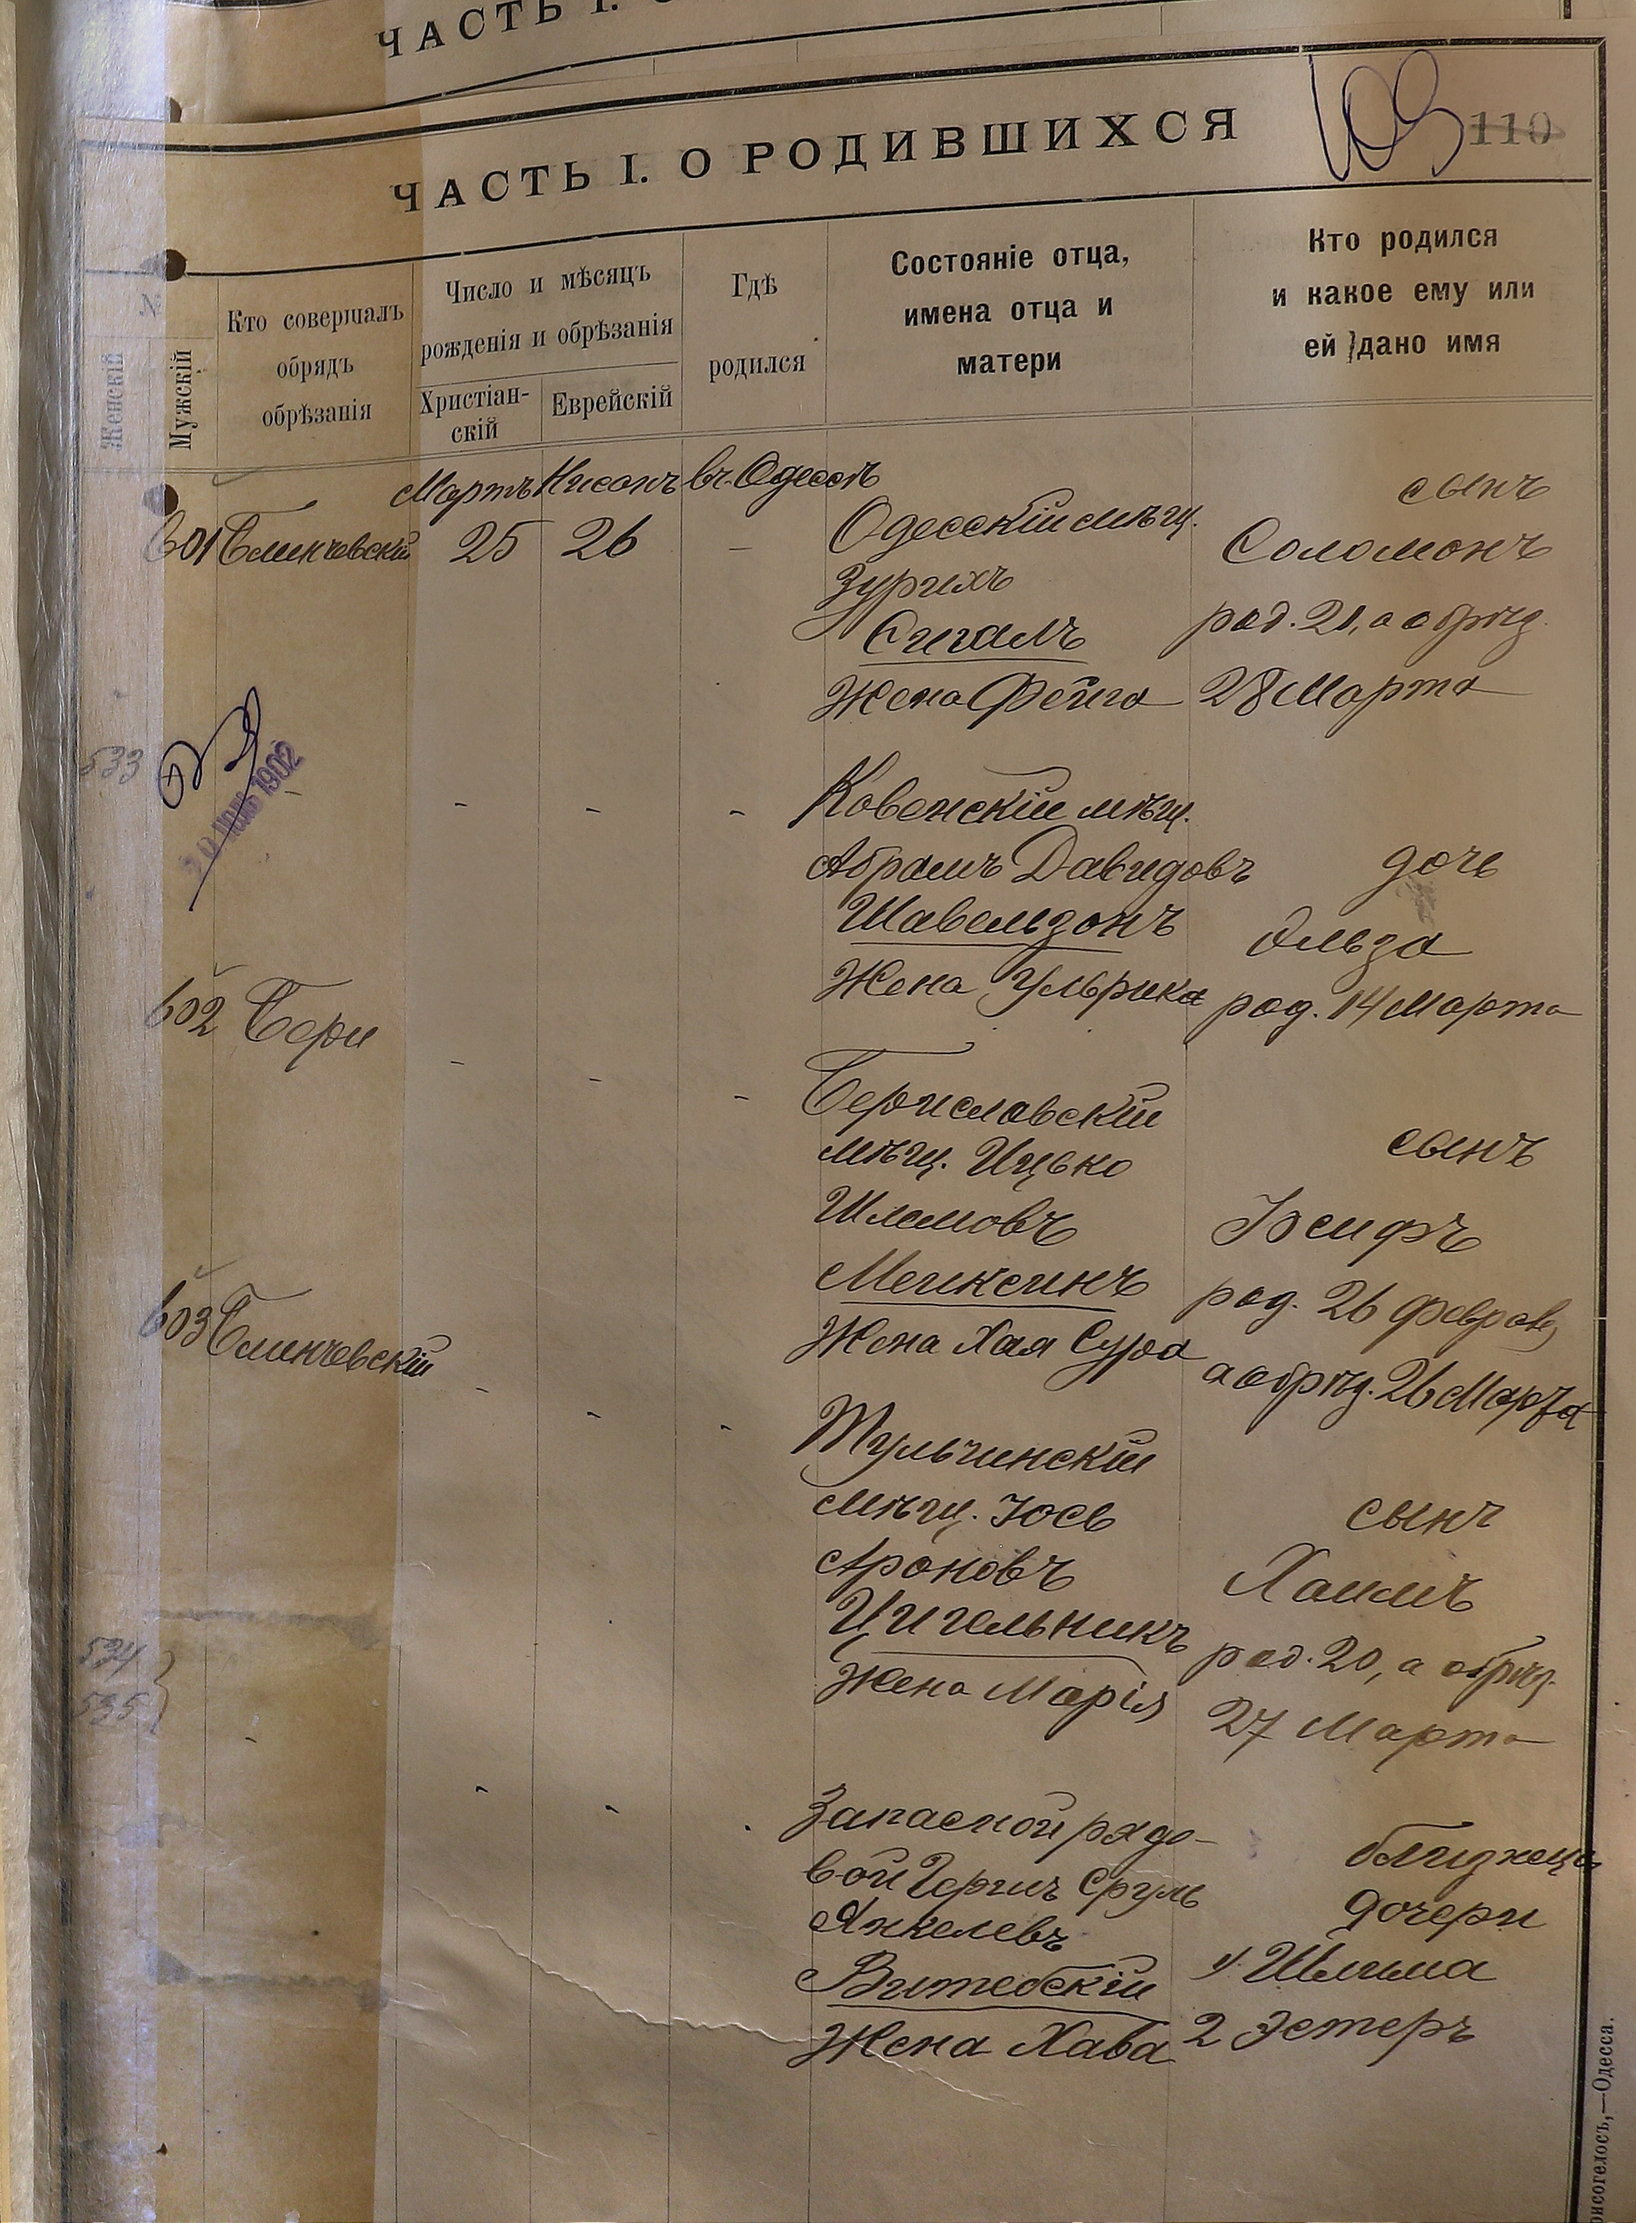 ЧАСТЬ I.
ЧАСТЬ I. О РОДИВШИХСЯ
109 110
№
Женскій
Мужскій
Кто совершалъ
обрядъ
обрѣзанія
Число и мѣсяцъ
рожденія и обрѣзанія
Христіан-
скій
Еврейскій
Гдѣ
родился
Состояніе отца,
имена отца и
матери
Кто родился
и какое ему или
ей дано имя
Мартъ Нисонъ въ Одессѣ
601 Блинчевскій 25 26 –
Одесскій мѣщ.
Зурихъ
Сигалъ
Жена Фейга
сынъ
Соломонъ
род. 21, а обрѣз.
28 Марта
533
1902
Ковенскій мѣщ.
Абрамъ Давидовъ
Шавельзонъ
Жена Ульрика
дочь
Эльза
род. 14 Марта
602 Бери
Бериславскій
мѣщ. Ицько
Шлемовъ
Мейксинъ
Жена Хая Сура
сынъ
Іосифъ
род. 26 Феврал
а обрѣз. 26 Марта
603 Блинчевскій
Тульчинскій
мѣщ. Іось
Ароновъ
Цигельникъ
Жена Марія
сынъ
Хаимъ
род. 20, а обрѣз.
27 Марта
534
535
Запасной рядо-
вой Герш Сруль
Янкелевъ
Витебскій
Жена Хава
близнецы
дочери
1. Шлима
2 Эстеръ
Одесса.